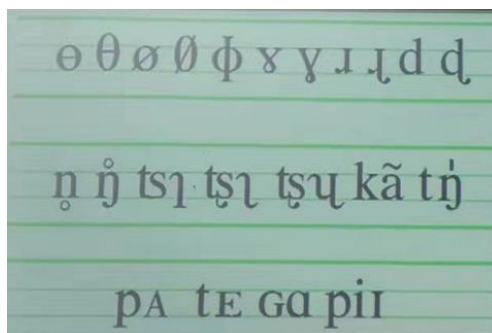 ɵ θ ø Ø ɸ ɤ ɣ ɹ ɻ d ɖ
n̥ ŋ̊ ʦʅ ʈʂʅ ʈʂɥ kã tŋ̍
pᴀ tᴇ ɢɑ piɪ